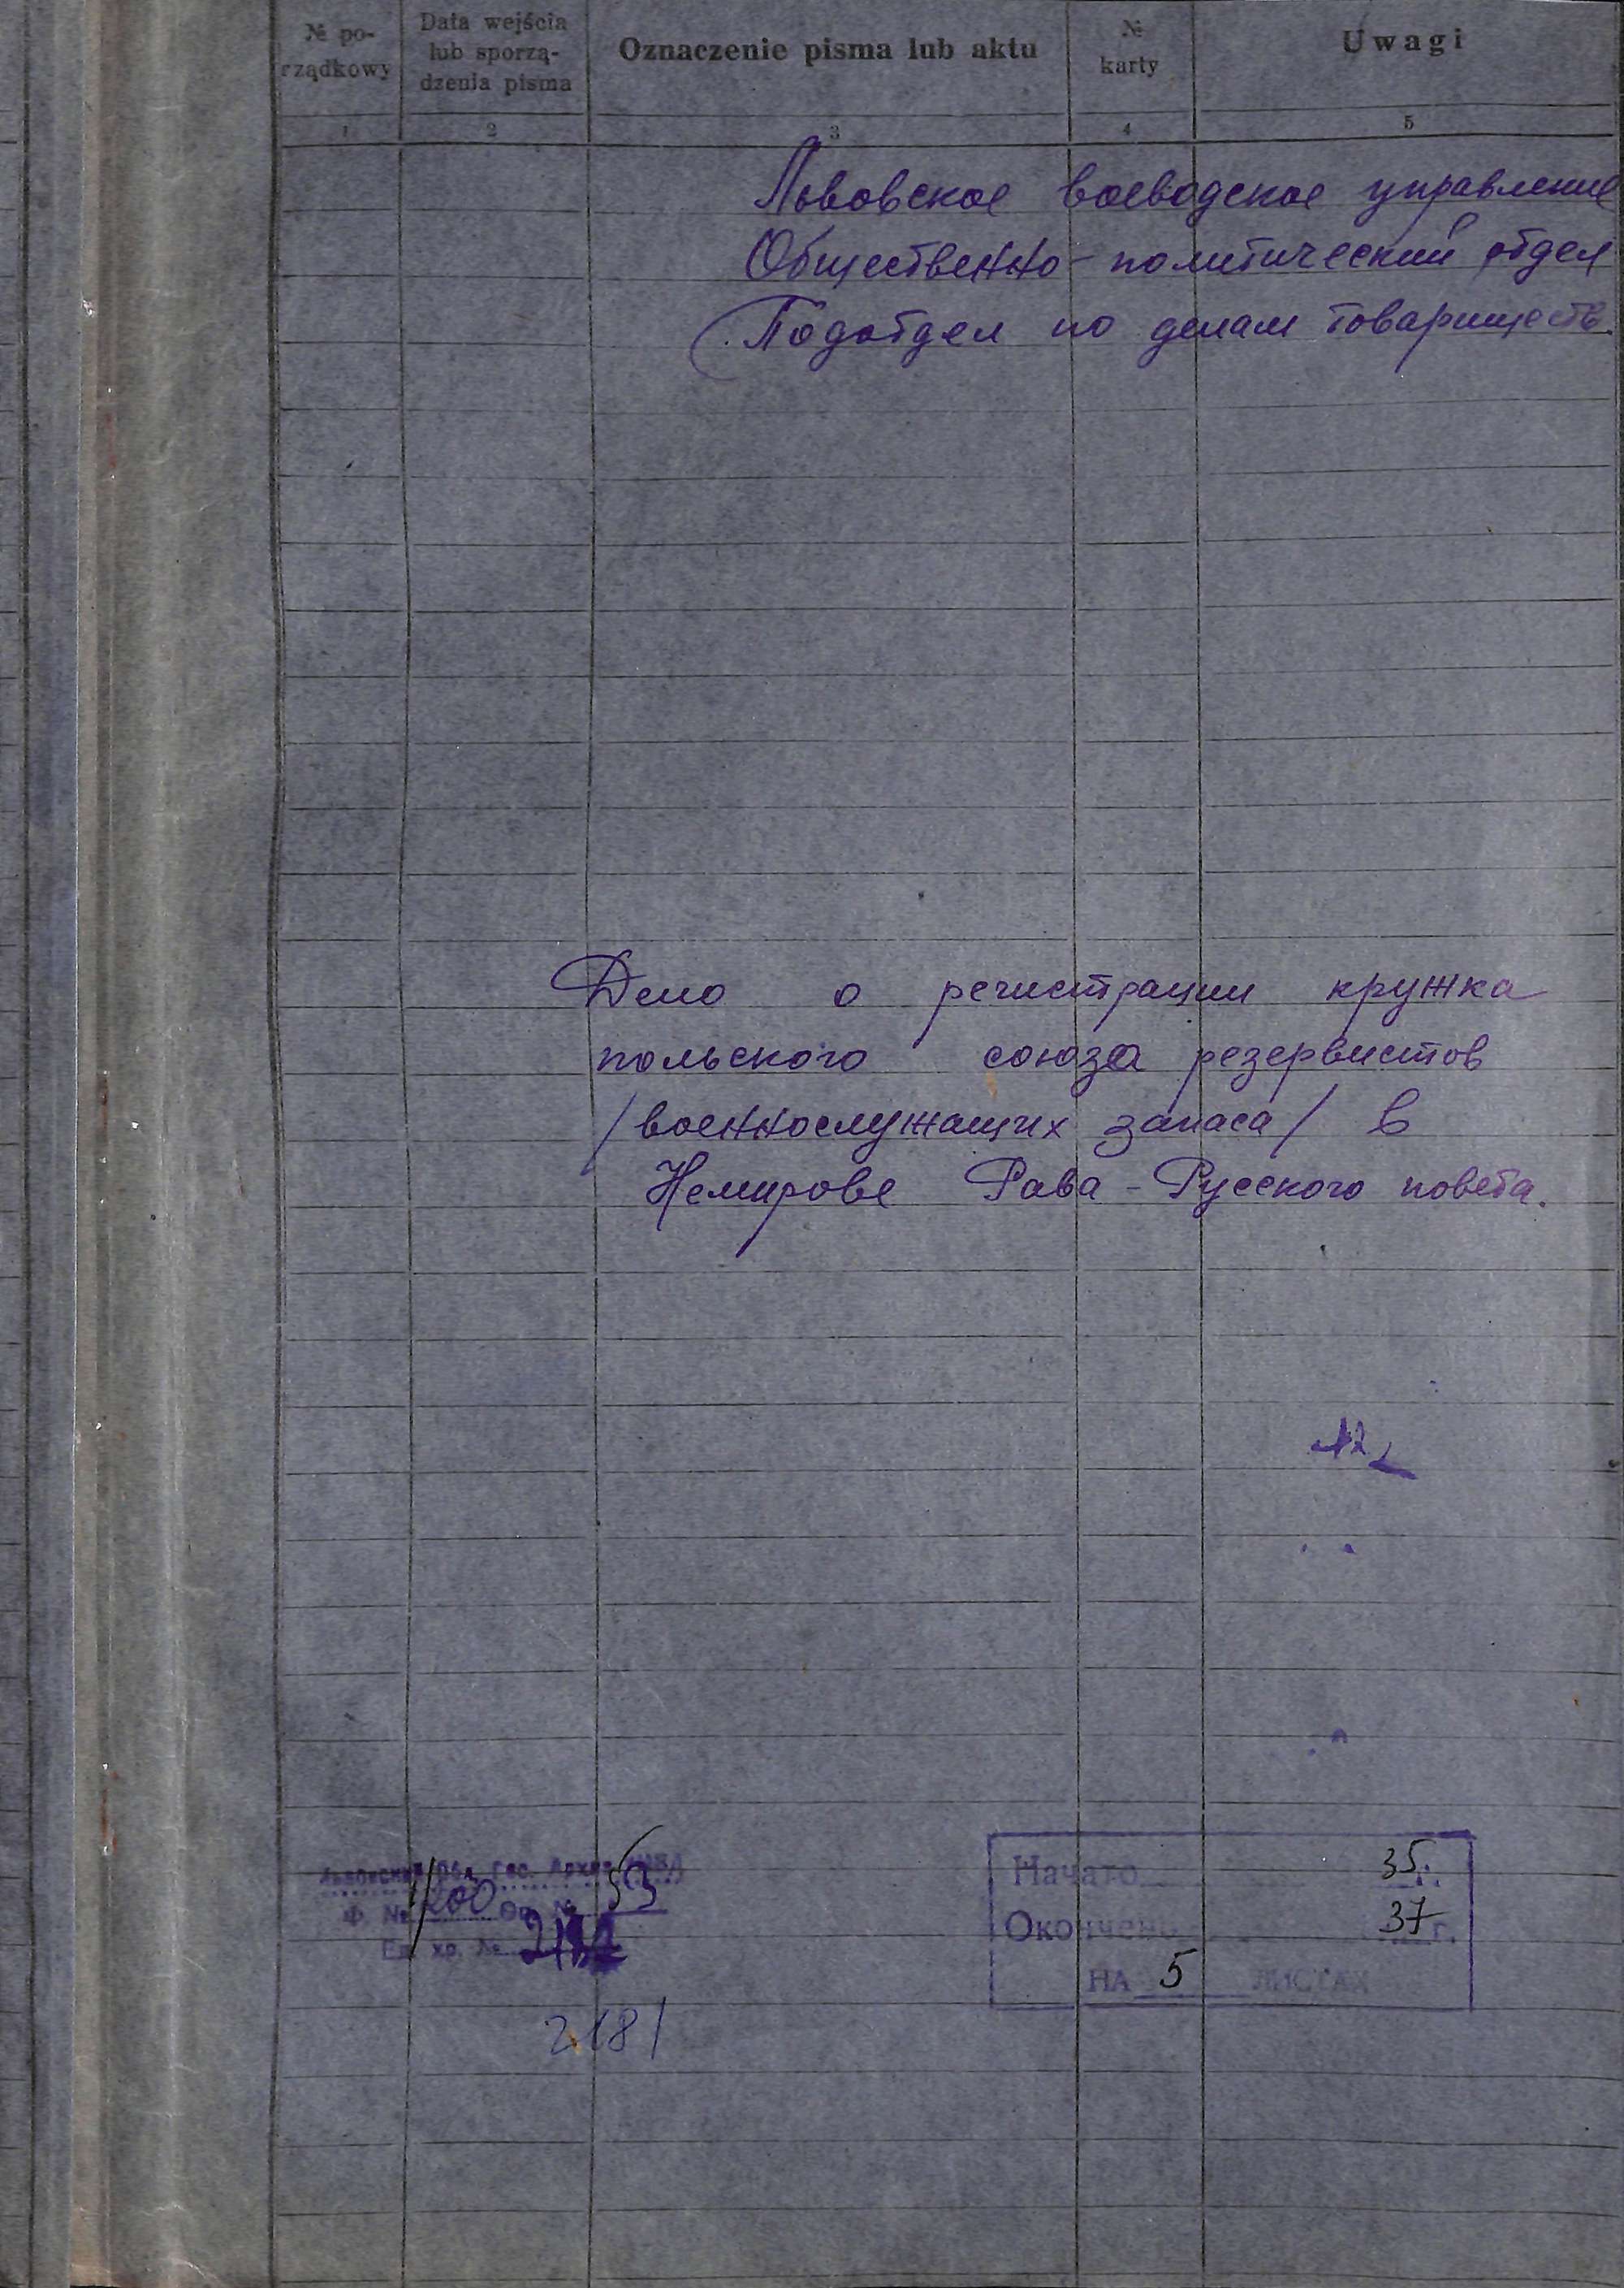 № po-
rządkowy
Data wejścia
lub sporzą-
dzenia pisma
Oznaczenie pisma lub aktu
№
karty
Uwagi
1 2 3 4 5
Львовское воеводское управление
Общественно-политический отдел
Подотдел по делам товариществ.
Дело о регистрации кружка
польского союза резервистов
/военнослужащих запаса/ в
Немирове Рава-Русского повета.
Львовский Обл. Гос. Архив
Ф. № 1/200 Оп. №
Ед. хр. №
2181
Начато 35 г.
Окончено 37 г.
НА 5 ЛИСТАХ